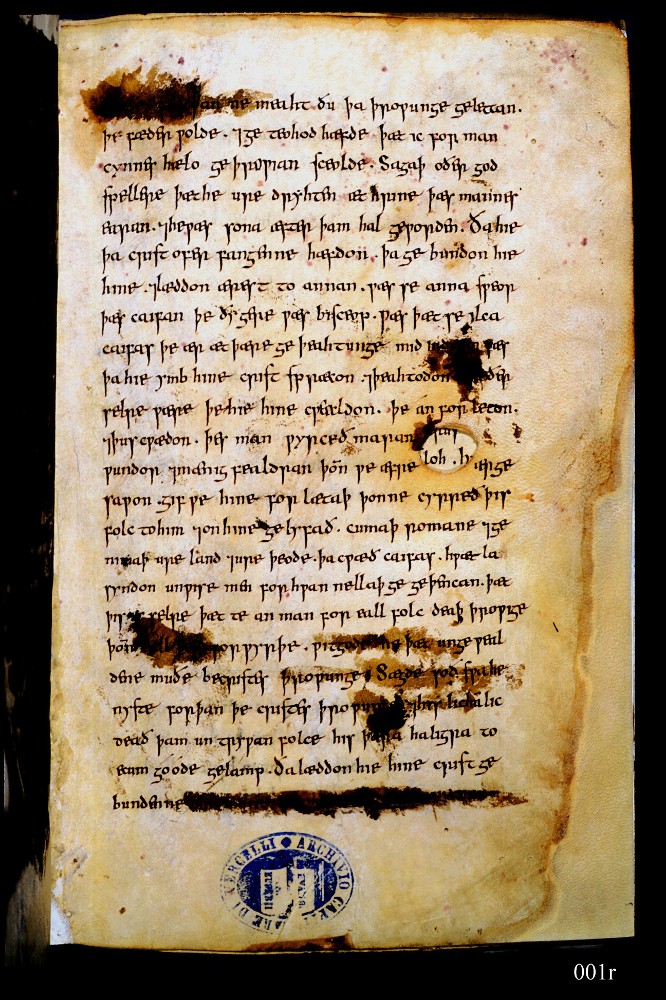 ne meaht ðu þa þrowunge gelettan.
þe fæder wolde . ⁊ ge teohod hæfde . þæt ic for man
cynnes hælo ge þrowian sceolde . Sagaþ oðer god
spellere þæt he ure dryhten æt hrine þæs mannes
earan . ⁊ he wæs sona æfter þam hal geworden . Ða hie
þa crist ofer fangenne hæfdon . þa ge bundon hie
hine . ⁊ læddon ærest to annan . wæs se anna sweor
þæs caifan þe ðy gere wæs bisceop . wæs þæt se ilca
caifas þe ær æt þære ge þeahtunge mid wæs
þa hie ymb hine crist spræcon . ⁊ þeahtodon
selre wære þe hie hine cwealdon . þe an forleton .
⁊ þus cwædon . þes man wyrceð manan
wundor . ⁊ mænig fealdran þon̄ we æfre ær ge
sawon . gif we hine for lætaþ þonne cyrreð þis
folc to him ⁊ on hine ge lyfað . cumaþ romane ⁊ ge
nimaþ ure land ⁊ ure þeode . þa cwæð caifas . hwæt la
syndon unwise men for hwan nellaþ ge geþencan . þæt
þis selre þæt te an man for eall folc deaþ þrowige
þon̄ eall forwyrþe . þæt unge weal
dene muðe be cristes þrowunge . Sægde soð swa he
nyste forþan þe cristes þrowung ⁊ his lichalic
deað þam un trywan folce his þara haligra to
ecum goode gelamp . Ða læddon hie hine crist ge
bundenne
ARCHIVIO CAP
RE DI VERCELLI
001r